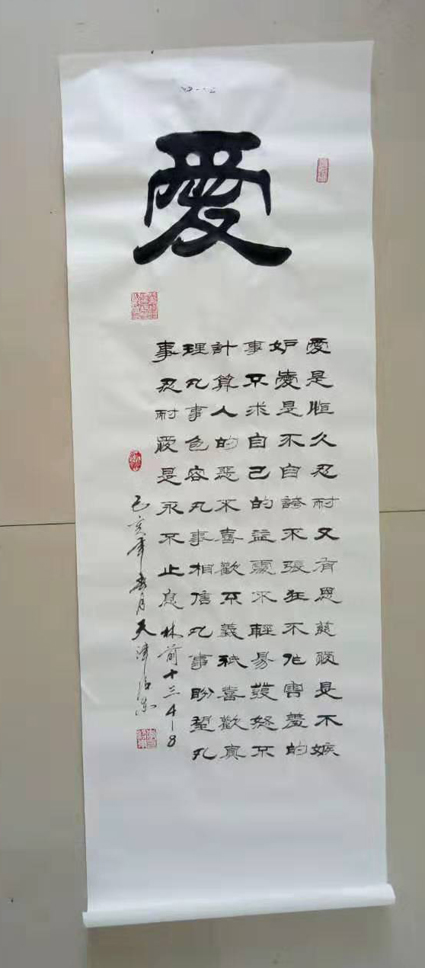 愛
愛是恒久忍耐又有恩慈愛是不嫉
妒愛是不自誇不張狂不作害羞的
事不求自己的益處不輕易發怒不
計算人的惡不喜歡不義祇喜歡真
理凡事包容凡事相信凡事盼望凡
事忍耐愛是永不止息 林前十三4-8
己亥年 月天津